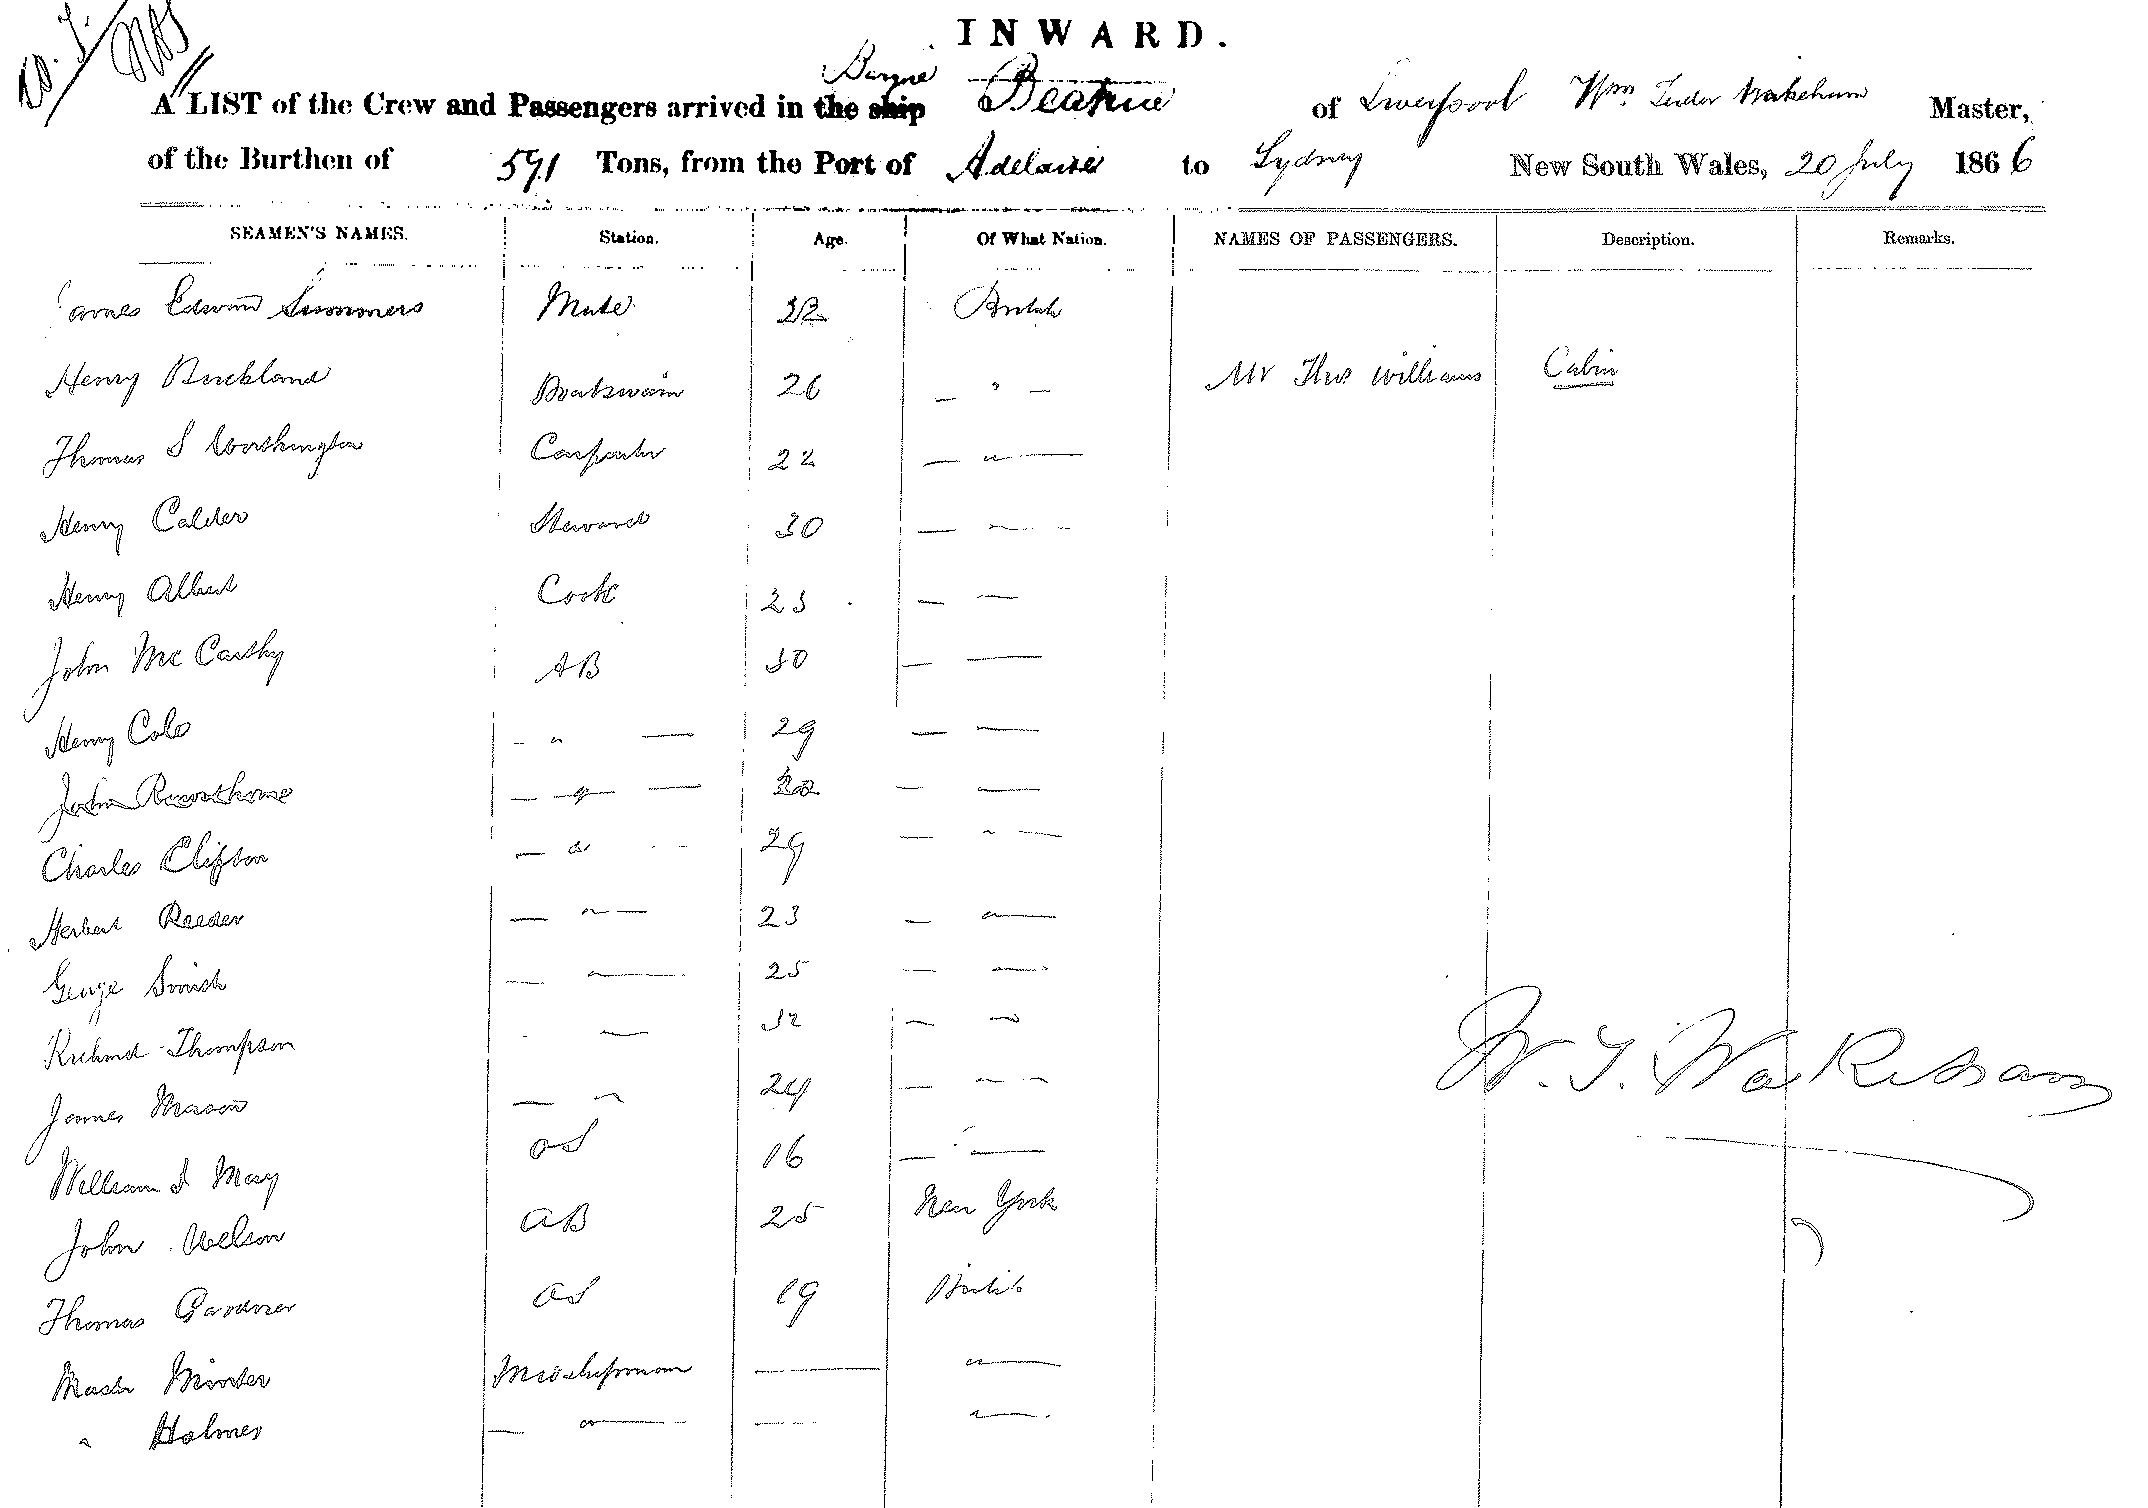 INWARD.
Barque
A LIST of the Crew and Passengers arrived in the ship Beatrice of Liverpool Wm Tudor Wakeham Master,
of the Burthen of 591 Tons, from the Port of Adelaide to Sydney New South Wales, 20 July 1866
SEAMEN'S NAMES. Station. Age. Of What Nation. NAMES OF PASSENGERS. Description. Remarks.
James Edwin Summers Mate 32 British
Henry Buckland Boatswain 26 — " — Mr Thos Williams Cabin
Thomas S Worthington Carpenter 22 — " —
Henry Calder Steward 30 — " —
Henry Albert Cook 23 — —
John McCarthy AB 30 — —
Henry Cole — " — 29 — —
John — " — — —
Charles Clifton — " — 29 — " —
Herbert Reeder — " — 23 — " —
George Smith — " — 25 — " —
Richard Thompson — 32 — "
James Mason — " 24 — " —
William J May OS 16 — " —
John Nelson AB 25 New York
Thomas Gardner OS 19 British
Midshipman — " —
" Holmes — " — — " —
W. T. Wakeham